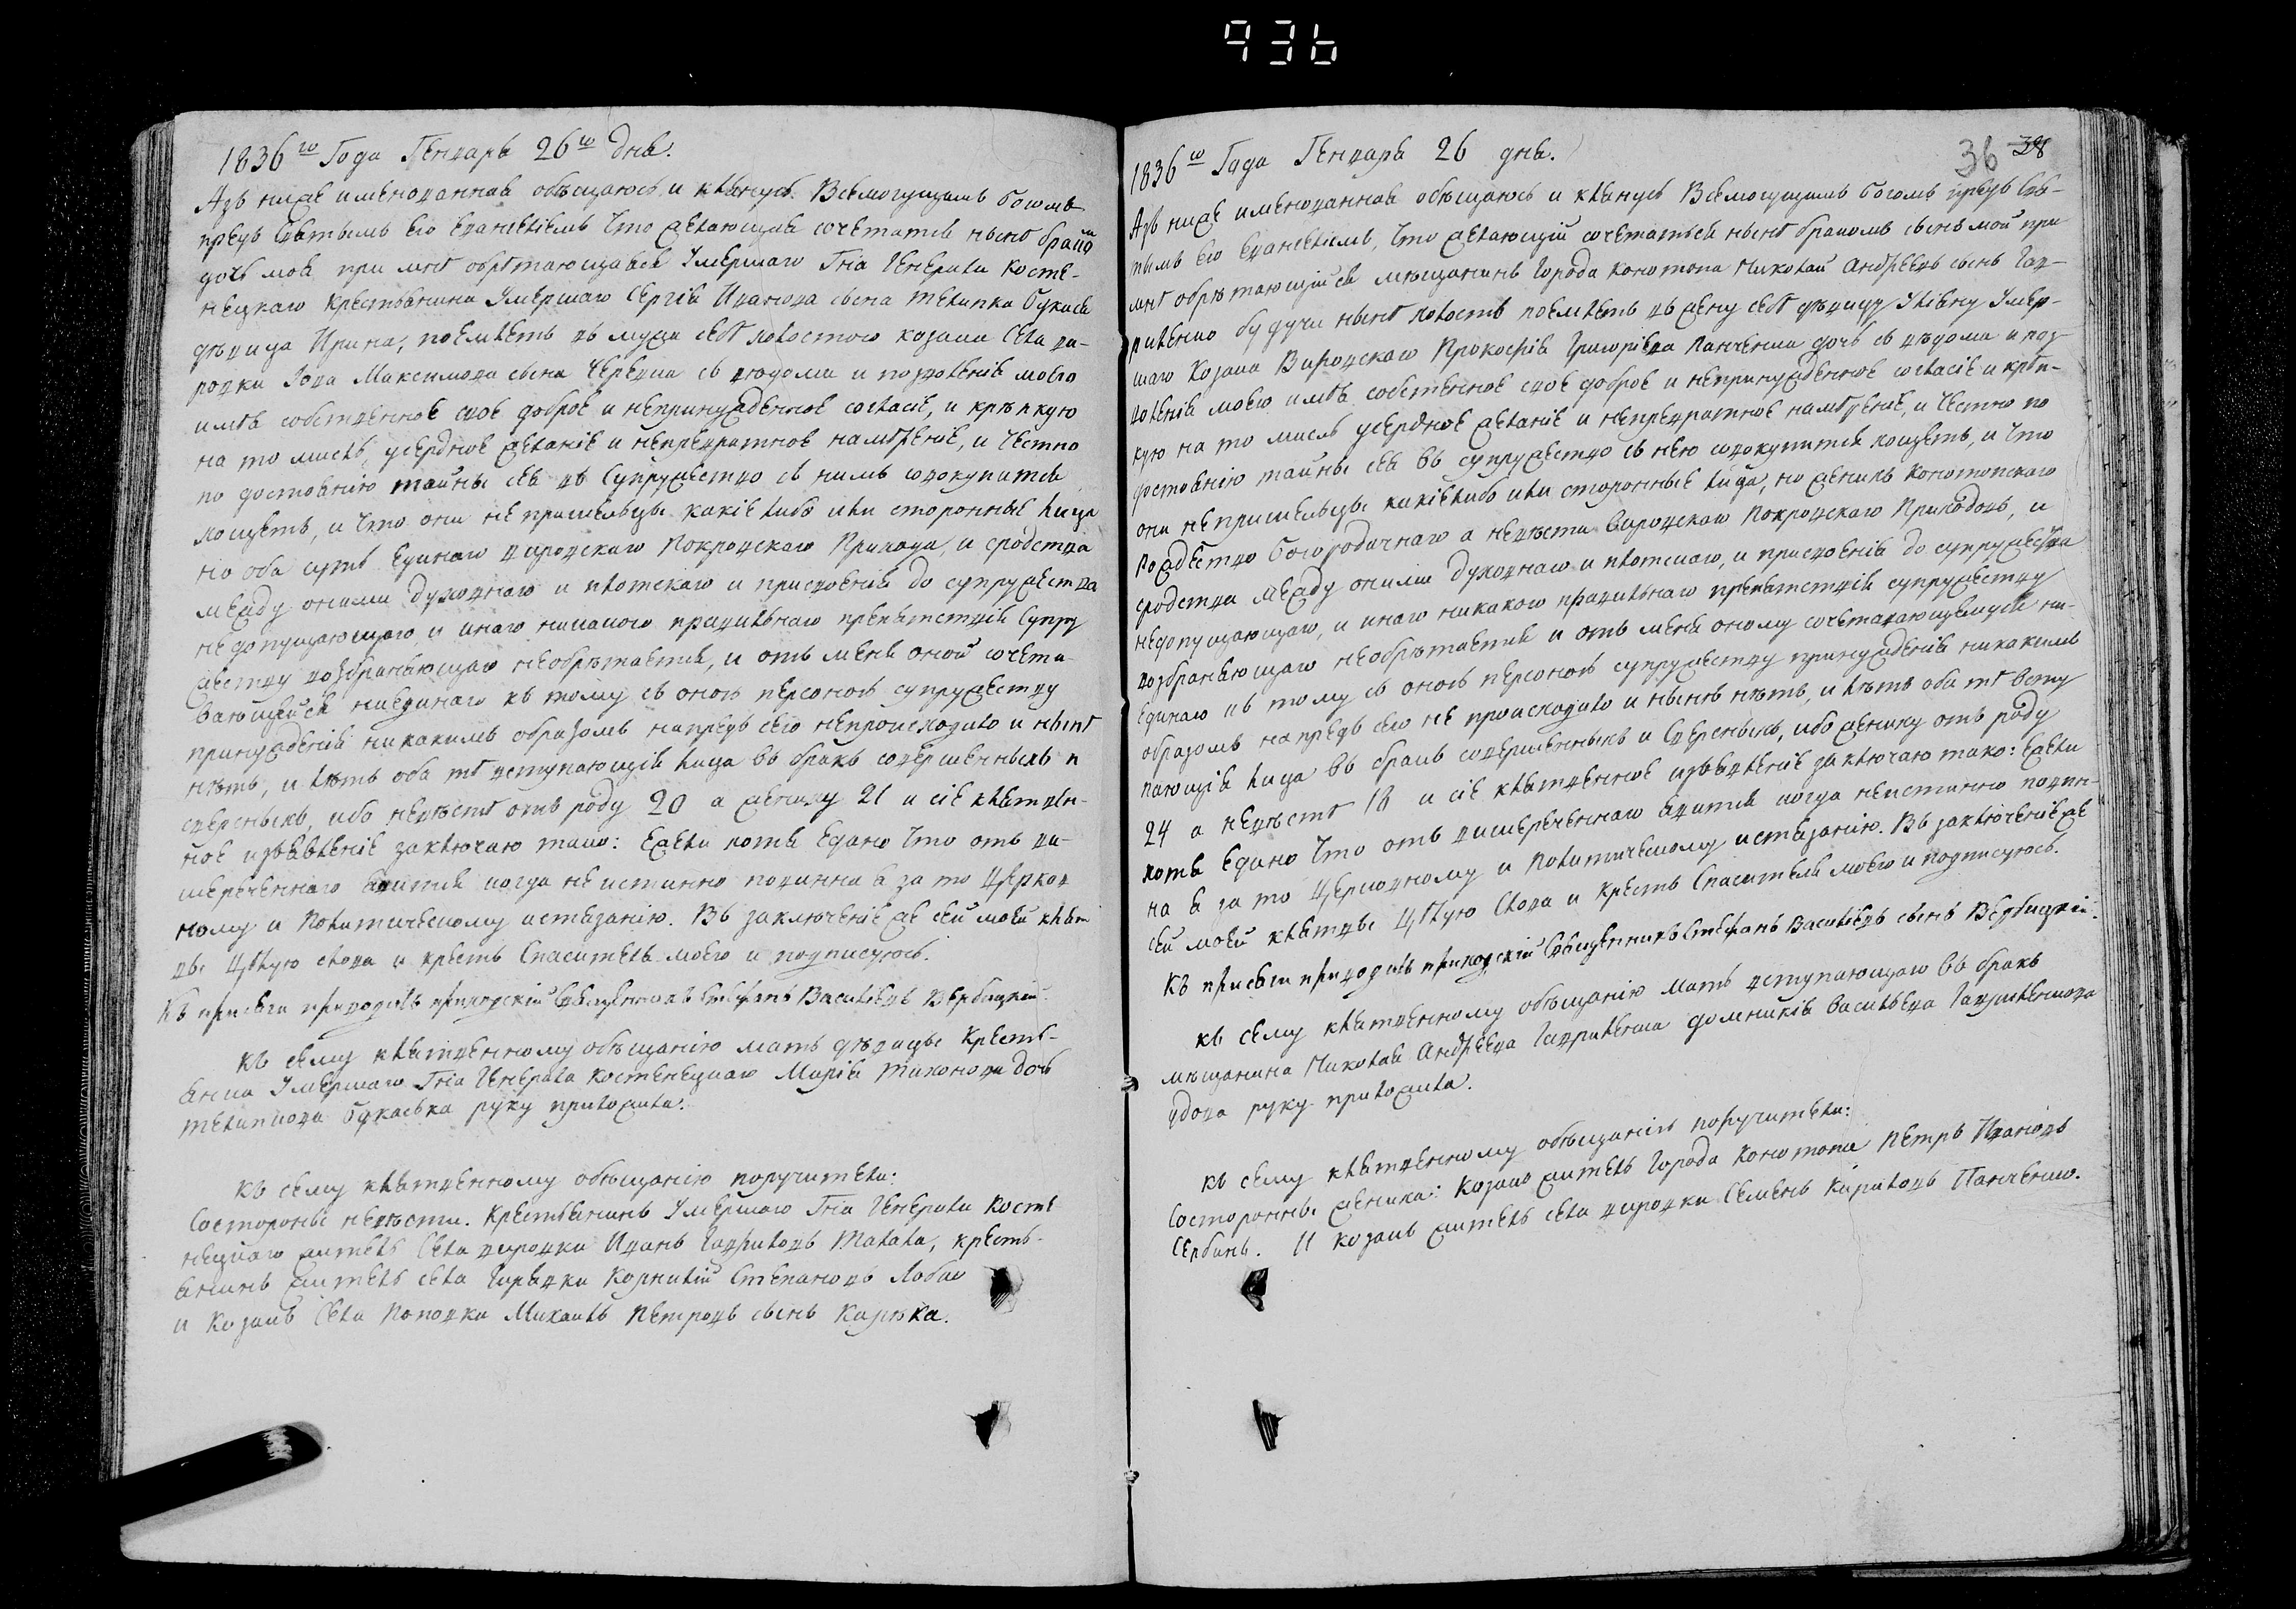 936
1836го Года Генваря 26го дня.
Азъ ниже именованная обѣщаюсь и клянусь Всемогущимъ богомъ
предъ святымъ его евангелiемъ что желающая сочетатися нынѣ бракомъ
дочь моя при мнѣ обрѣтающаяся умершаго Гна Генерала Косте-
нецкаго крестьянина умершаго Сергiя Иванова сына
дѣвица Ирина, поемлетъ въ мужа себѣ холостого козака села ви-
ровки Iова Максимова сына съ вѣдома и позволенiя моего
имѣя собственное свое доброе и непринужденное согласiе, и крѣпкую
на то мысль, усердное желанiе и непревратное намѣренiе, и честно
по достоянiю тайны сея въ супружество съ нимъ совокупитися
хощетъ, и что они не пришельцы какiелибо или сторонные лица
но оба суть единаго вировскаго Покровскаго Прихода, и сродства
между оними духовнаго и плотскаго и присвоенiя до супружества
не допущающаго и инаго никакого правильнаго препятствiя супру
жеству возбраняющаго необрѣтается, и отъ мене оной сочета-
вающейся ниединаго къ тому съ оною персоною супружеству
принужденiя никакимъ образомъ напредь сего непроисходило и нынѣ
нѣтъ, и лѣтъ оба тѣ вступающiя лица въ бракъ совершенныхъ и
сверсныхъ, ибо невѣстѣ отъ роду 20 а жениху 21 и сiе клятвен-
ное изъявленiе заключаю тако: ежели хотя едано что отъ ви-
шереченнаго явится когда не истинно повинна я за то церков
ному и политическому истязанiю. Въ заключенiе же сей моей клят
вы цѣлую слова и крестъ Спасителя моего и подписуюсь.
Къ присяги приводилъ приходскiй Священникъ Стефанъ Василiевъ Вербицкiй.
Къ сему клятвенному обѣщанiю мать дѣвицы Кресть-
янка умершаго Гна Генерала Костенецкаго Марiя Тихонова дочь
руку приложила.
Къ сему клятвенному обѣщанiю поручители:
Состороны невѣсти. Крестьянинъ умершаго Гна Генерала Косте
нецкаго житель села вировки Иванъ Гавриловъ Малала, кресть-
янинъ житель села Корнилiй Степановъ Лобас
и козакъ села Поповки Михаилъ Петровъ сынъ Кирѣка.
36 38
1836го Года Генваря 26 дня.
Азъ ниже именованная обѣщаюсь и клянусь Всемогущимъ богомъ предъ свя-
тымъ его евангелiемъ, что желающiй сочетатися нынѣ бракомъ сынъ мой при
мнѣ обрѣтающiйся мѣщанинъ города Конотопа Николай Андреевъ сынъ Гав-
риленко будучи нынѣ холостъ поемлетъ въ жену себѣ дѣвицу Улiяну умер-
шаго козака Вировскаго Прокофiя Григорiева Панченка дочь съ вѣдома и поз
воленiя моего имѣя собственное свое доброе и непринужденное согласiе и крѣп-
кую на то мысль усердное желанiе и непревратное намѣренiе, и честно по
достоянiю тайны сея въ супружество съ нею совокупитися хощетъ, и что
они не пришельцы какiелибо или сторонные лица, но женихъ Конотопскаго
Рождество Богородичнаго а невѣста вировскаго Покровскаго Приходовъ, и
сродства между оними духовнаго и плотскаго, и присвоенiя до супружества
недопущающаго, и инаго никакого правильнаго препятствiя супружеству
возбраняющаго необрѣтается и отъ мене оному сочетавающемуся ни-
единаго къ тому съ оною персоною супружеству принужденiя никакимъ
образомъ напредъ сего не происходило и нынѣ нѣтъ, и лѣтъ оба тѣ всту
пающiя лица въ бракъ совершенныхъ и сверсныхъ, ибо жениху отъ роду
24 а невѣстѣ 18 и сiе клятвенное изъявленiе заключаю тако: ежели
хотя едано что отъ вишереченнаго явится когда неистинно повин-
на я за то церковному и политическому истязанiю. Въ заключенiе же
сей моей клятвы цѣлую слова и крестъ Спасителя моего и подписуюсь.
Къ присяги приводилъ приходскiй Священникъ Стефанъ Василiевъ сынъ Вербицкiй.
Къ сему клятвенному обѣщанiю мать вступающаго въ бракъ
мѣщанина Николая Андреева Гавриленка Домникiя Васильева Гавриленкова
вдова руку приложила.
Къ сему клятвенному обѣщанiю поручители:
Состоронны жениха: козакъ житель города Конотопа Петръ Ивановъ
Сербинъ. И козакъ житель села вировки Семенъ Кириловъ Панченко.